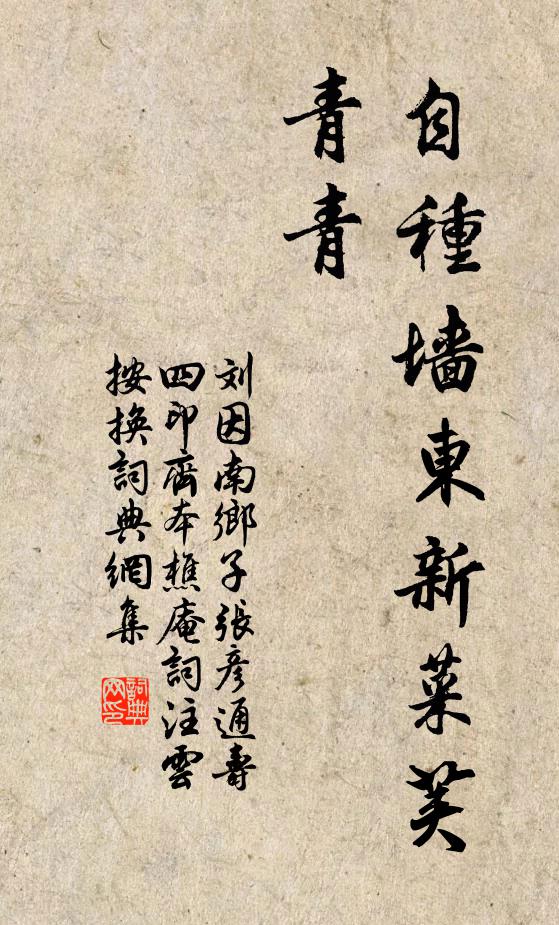 自種墙東新菜荚
青青
刘因南鄉子張彦通壽
四印齋本樵庵詞注雲
按換詞典網集
詞典网印